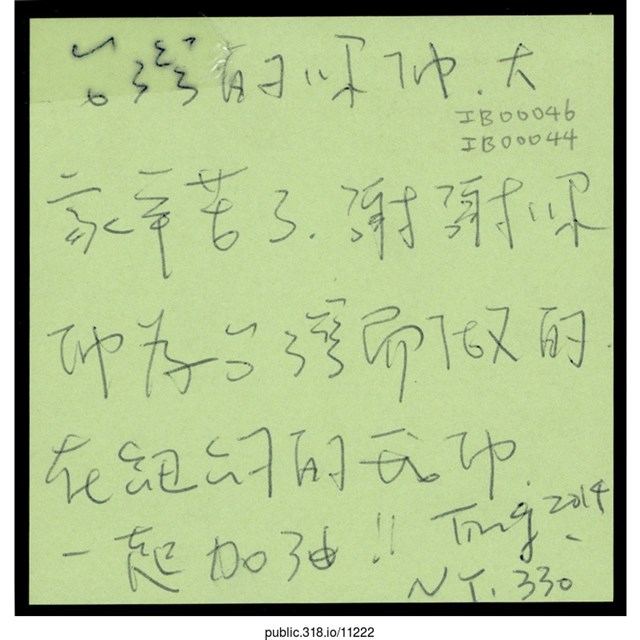 台灣的你們.大
IB00046
IB00044
家辛苦了.謝謝你
們為台灣所做的.
在紐約的我們
一起加油!! Ting 2014
NY. 330
public.318.io/11222